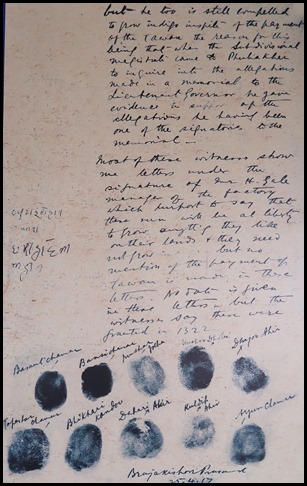 but he too is still compelled
to grow indigo inspite of the payment
of the tawan the reason for this
being that when the Subdivisional
magistrate came to Phulakher
to inquire into the allegations
made in a memorial to the
Lieutenant Governor he gave
evidence in support of the
allegations he having been
one of the signatories to the
memorial —
Most of these witnesses show
me letters under the
signature of Mr H. Gale
manager of the factory
which purport to say that
these men will be at liberty
to grow anything they like
on their lands & they need
not grow but no
mention of the payment of
tawan is made in these
letters. No date is given
in these letters but the
witnesses say these were
granted in 1322
Basant chamar
Bansi
Dhapar Ahir
chamar
Bhikhari
kandoo
Dahari Ahir
Kuldip
Ahir
chamar
Brajakishore Prasad
25-4-17